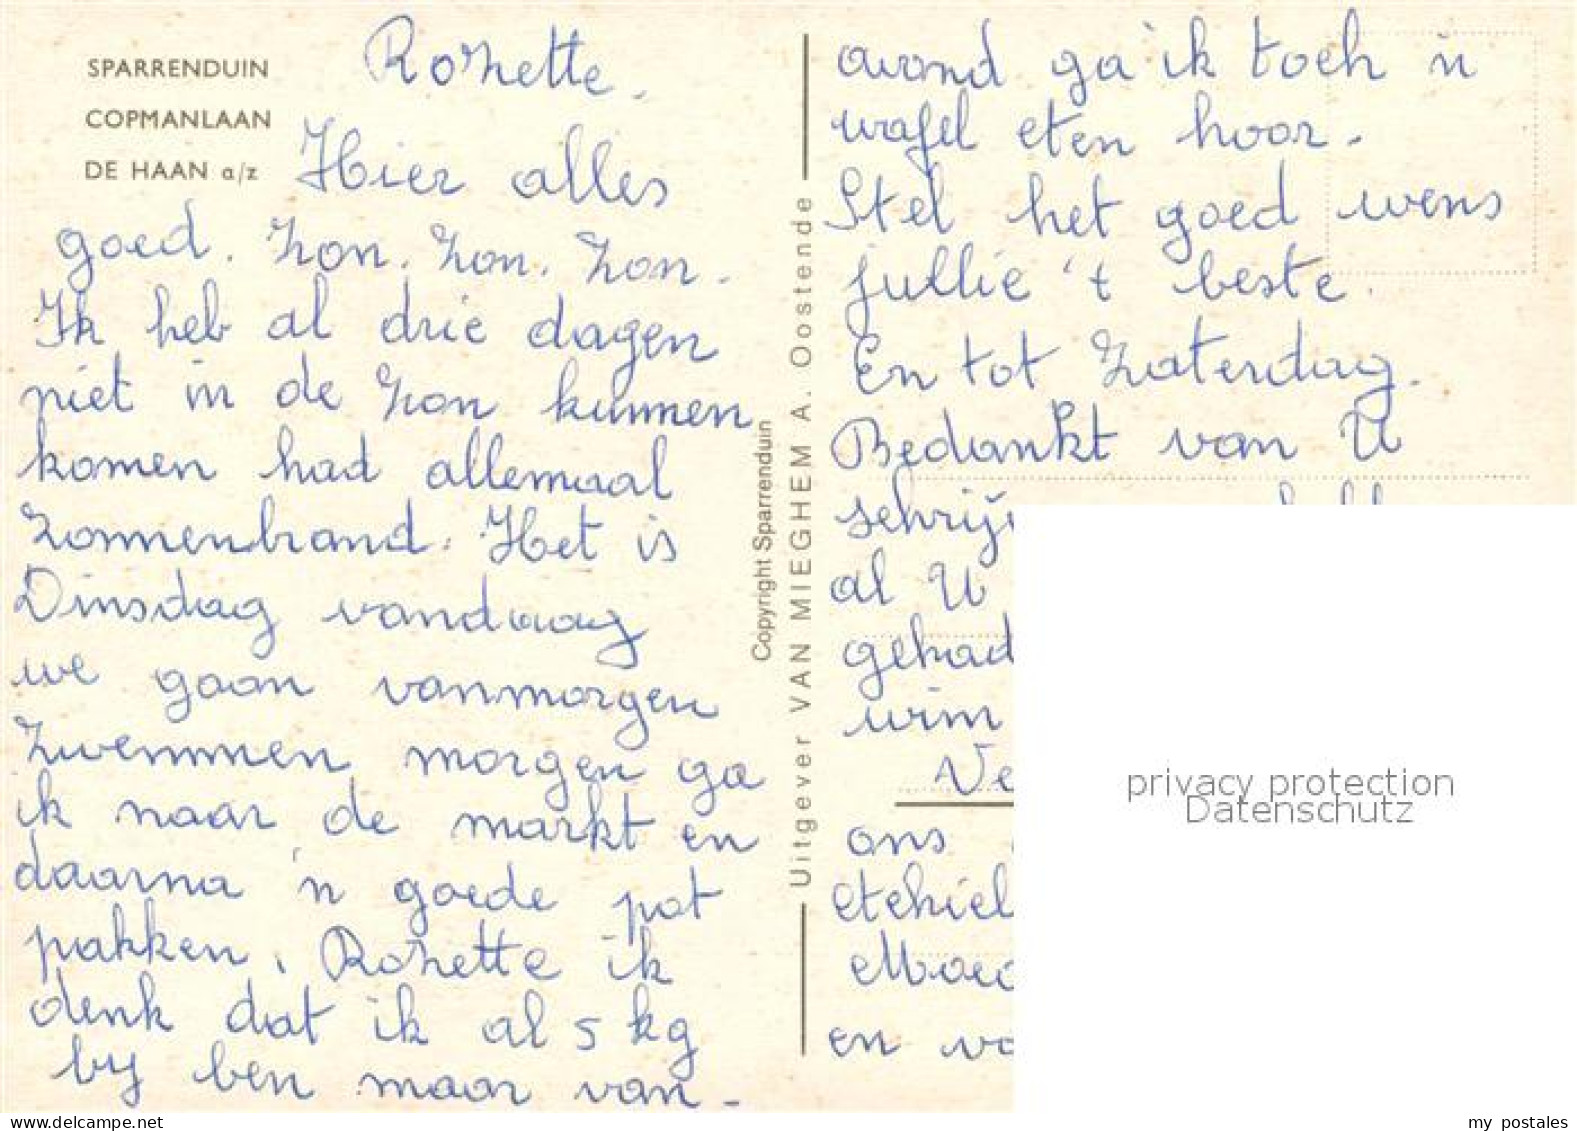 SPARRENDUIN
COPMANLAAN
DE HAAN a/z
Rozette.
Hier alles
goed. Zon. Zon. Zon.
Ik heb al drie dagen
niet in de zon kunnen
komen had allemaal
zonnenbrand. Het is
Dinsdag vandaag
we gaan vanmorgen
zwemmen morgen ga
ik naar de markt en
daarna 'n goede pot
pakken. Rozette ik
denk dat ik al 5 kg
bij ben maar van-
Copyright Sparrenduin
Uitgever VAN MIEGHEM A. Oostende
avond ga ik toch 'n
wafel eten hoor.
Stel het goed wens
jullie 't beste.
En tot Zaterdag.
Bedankt van U
schrij
al U
gehad
wim
Ve
ons
etehiel
Moed
en va
privacy protection
Datenschutz
www.delcampe.net
my postales